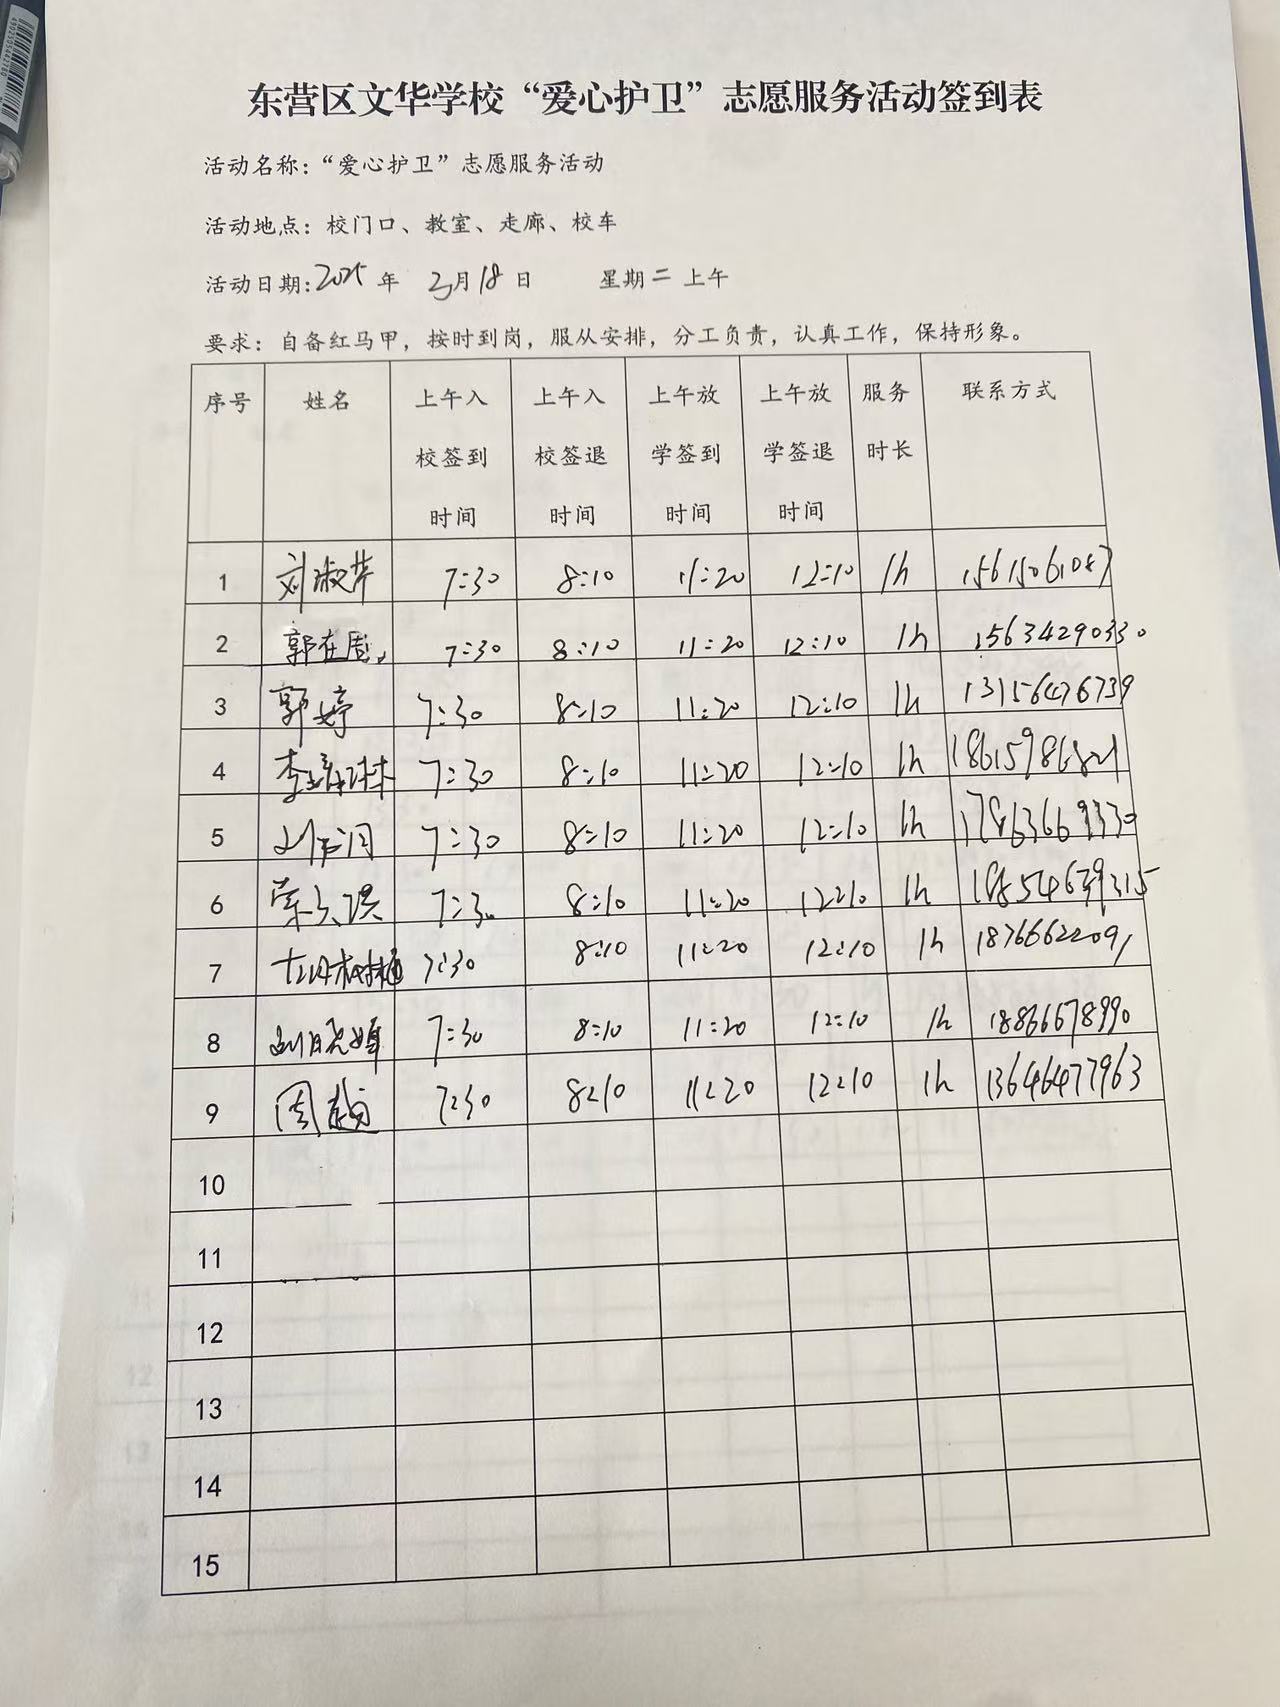 东营区文华学校“爱心护卫”志愿服务活动签到表
活动名称：“爱心护卫”志愿服务活动
活动地点：校门口、教室、走廊、校车
活动日期：2025年 3月18日 星期二 上午
要求：自备红马甲，按时到岗，服从安排，分工负责，认真工作，保持形象。
序号 姓名 上午入校签到时间 上午入校签退时间 上午放学签到时间 上午放学签退时间 服务时长 联系方式
1 刘淑芹 7:30 8:10 11:20 12:10 1h 15615061087
2 7:30 8:10 11:20 12:10 1h 15634290330
3 郭婷 7:30 8:10 11:20 12:10 1h 13156476739
4 7:30 8:10 11:20 12:10 1h
5 7:30 8:10 11:20 12:10 1h 17863669330
6 7:30 8:10 11:20 12:10 1h 18854639315
7 7:30 8:10 11:20 12:10 1h 18766622091
8 7:30 8:10 11:20 12:10 1h 18866678990
9 7:30 8:10 11:20 12:10 1h 13646477963
10
11
12
13
14
15